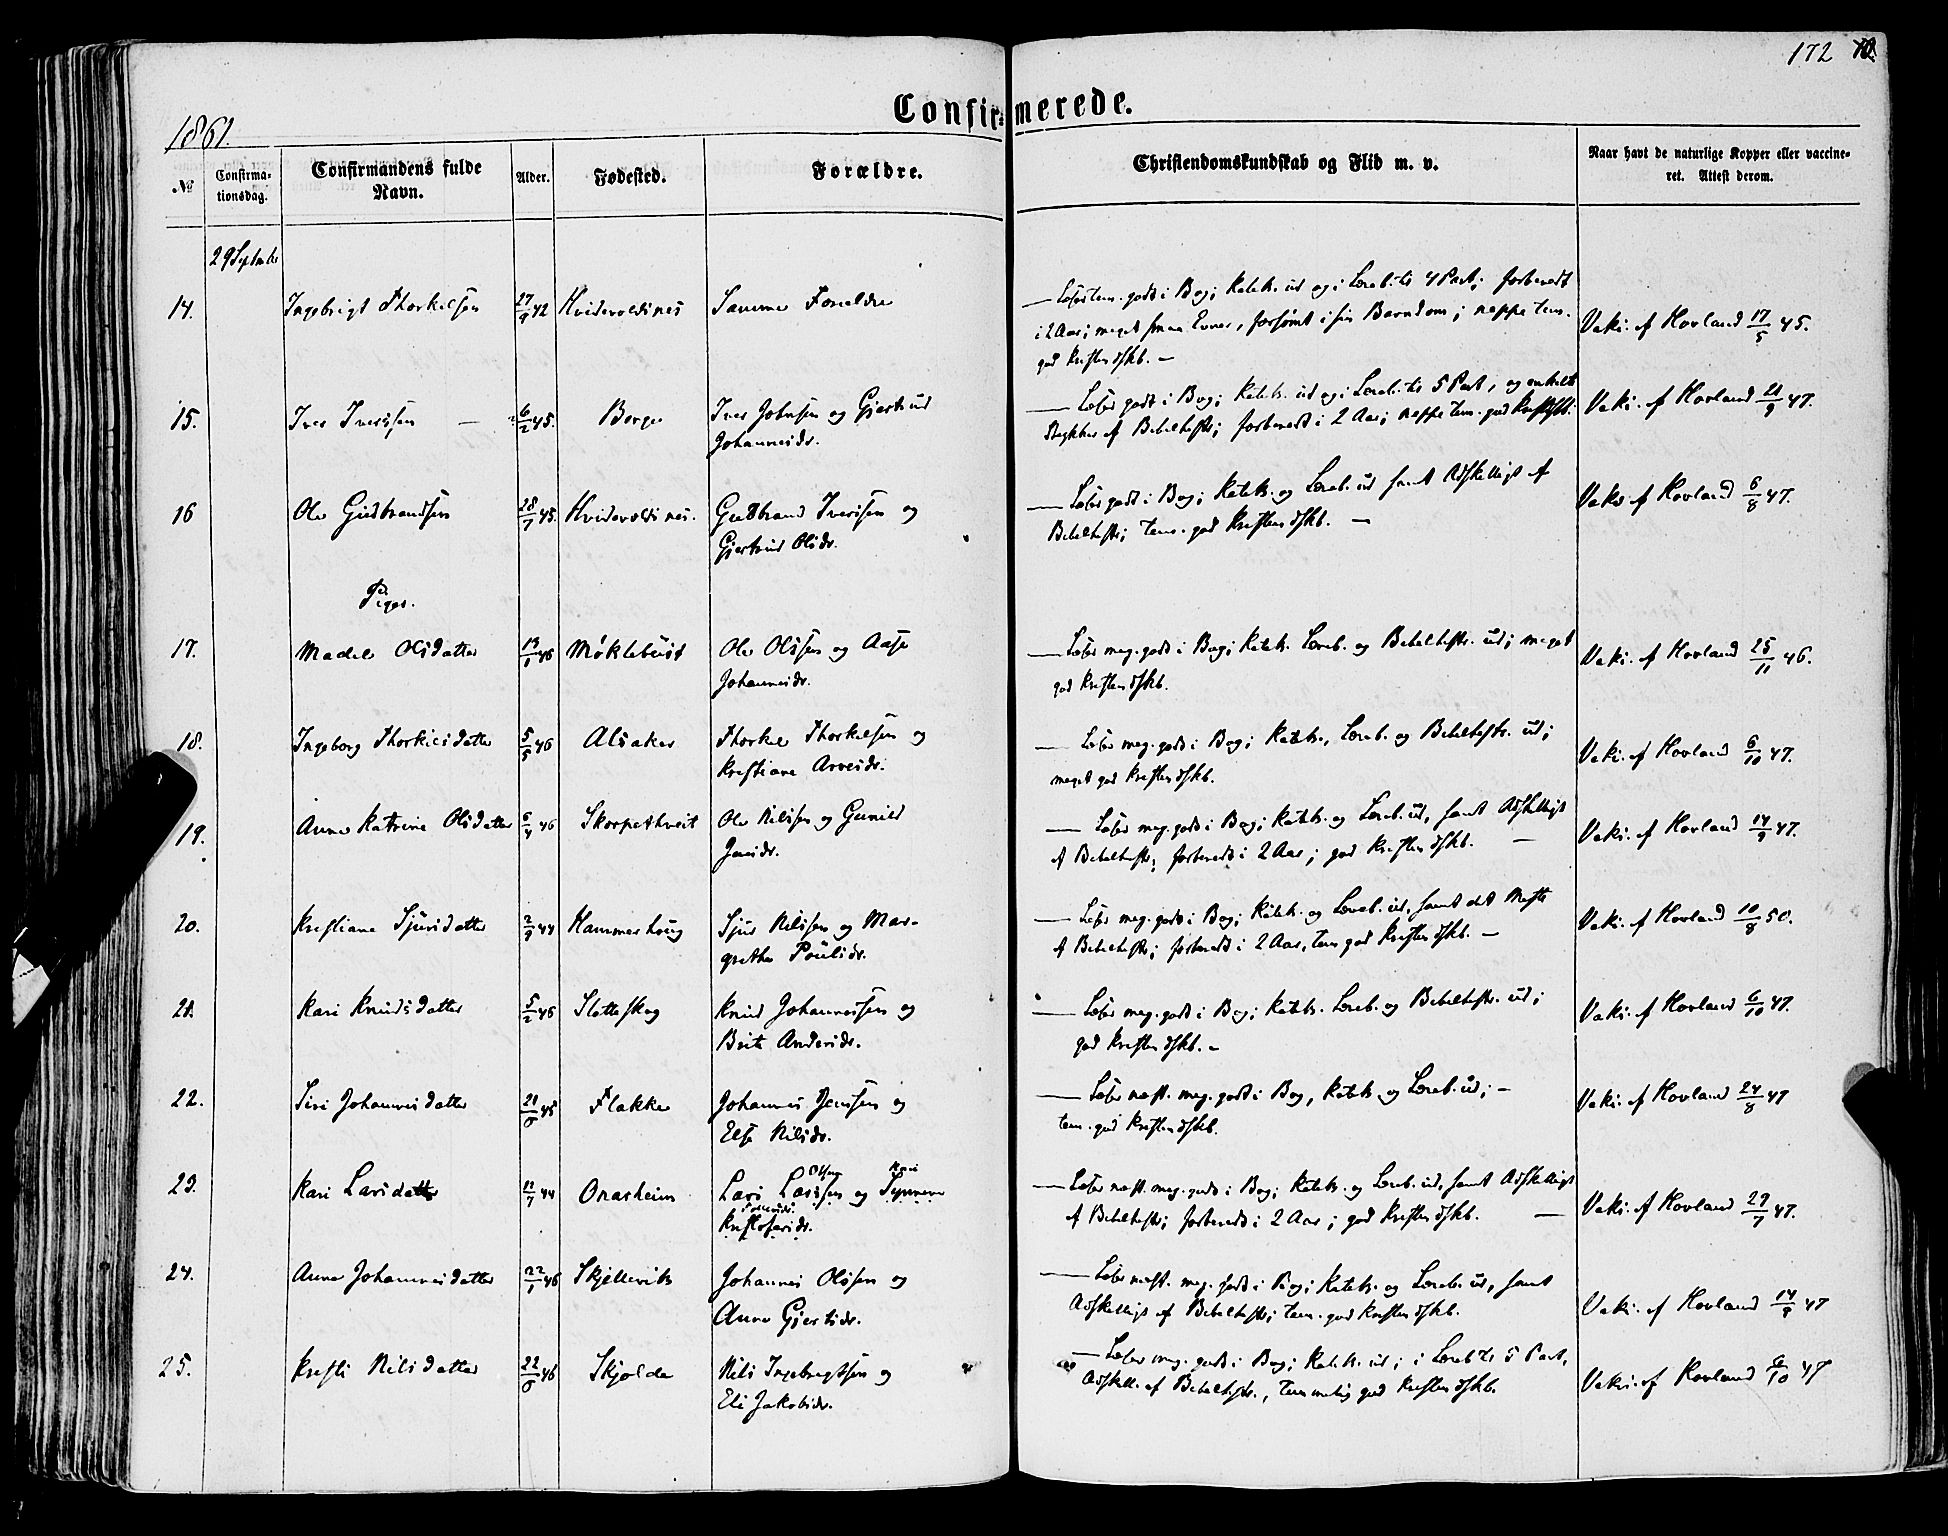 172
Confirmerede.
1861.
No
Confirmationsdag.
Confirmandens fulde Navn.
Alder.
Fødested.
Forældre.
Christendomskundskab og Flid m. v.
Naar havt de naturlige Kopper eller vaccineret. Attest derom.
29 September
14. Ingebrigt Thorkilsen 27/9 42 Hvidevoldsnes Samme Forældre
Læser tem. godt i Bog; Katek. ud og i Loreb. til 4 Part; forberedt
i 2 Aar; meget smaa Evner, forsømt i sin Barndom; neppe tem.
god Kristendskb. —
Vaki. af Hovland 17/5 45.
15. Iver Iverssen 6/2 45. Berge Iver Johnsen og Gjertrud
Johannesdr.
Læser godt i Bog; Katek. ud og i Loreb. til 5 Part, og enkelte
Stykker af Bibelhist; forberedt i 2 Aar; neppe tem. god Kristdskb.
Vaki. af Hovland 21/9 47.
16 Ole Gudbrandsen 28/7 45. Hvidevoldsnes. Gudbrand Iverssen og
Gjertrud Olsdr.
Læser godt i Bog; Katek. og Loreb. ud samt Adskilligt af
Bibelhist; tem. god Kristendskb. —
Vaki af Hovland 6/8 47.
Piger.
17. Madel Olsdatter 13/1 46 Møklebust Ole Olssen og Aase
Johannesdr.
Læser meg. godt i Bog; Katek. Loreb. og Bibelhistr. ud; meget
god Kristendskb.
Vaki. af Hovland 25/11 46.
18. Ingeborg Thorkilsdatter 5/5 46 Alsaker Thorkel Thorkelsen og
Kristiane Arnesdr.
Læser meg. godt i Bog; Katek., Loreb. og Bibelhistr. ud;
meget god Kristendskb.
Vaki. af Hovland 6/10 47.
19. Anna Katrine Olsdatter 6/4 46 Skorpethveit Ole Nilssen og Gunild
Jensdr.
Læser meg. godt i Bog; Katek. og Loreb. ud, samt Adskilligt
af Bibelhist; forberedt i 2 Aar; god Kristendskb. —
Vaki. af Hovland 14/9 47.
20. Kristiane Sjursdatter 2/9 44 Hammerhoug Sjur Nilssen og Mar-
grethe Poulsdr.
Læser meg. godt i Bog; Katek. og Loreb. ud, samt det Meste
af Bibelhist; forberedt i 2 Aar, tem god Kristendskb. —
Vaki. af Hovland 10/8 50.
21. Kari Knudsdatter 5/2 46 Slotteskog Knud Johannessen og
Brita Andersdr.
Læser meg. godt i Bog; Katek. Loreb. og Bibelhistr. ud;
god Kristendskb. —
Vaki. af Hovland 6/10 47.
22. Siri Johannesdatter 45 Flakke Johannes Jenssen og
Else Nilsdr.
Læser næst. meg. godt i Bog, Katek. og Loreb. ud; —
tem. god Kristendskb.
Vaki. af Hovland 24/8 47
23. Kari Larsdatter 44 Onarheim Lars Larssen og Synneve
Kristofersdr.
Læser næst. meg. godt i Bog; Katek. og Loreb. ud, samt Adskilligt
af Bibelhist; forberedt i 2 Aar; god Kristendskb. —
Vaki. af Hovland 29/7 47.
24. Anna Johannesdatter 22/1 46 Skjellevik Johannes Olssen og
Anna Gjertsdr.
Læser næst. meg. godt i Bog; Katek. og Loreb. ud, samt
Adskilligt af Bibelhist; tem. god Kristendskb.
Vaki. af Hovland 14/9 47
25. Kristi Nilsdatter 46 Skjolde Nils Ingebrigtsen og
Eli Jakobsdr.
Læser meg. godt i Bog; Katek. ud; i Loreb til 5 Part,
Adskill. af Bibelhistr., temmelig god Kristendskb.
Vaki. af Hovland 6/10 47